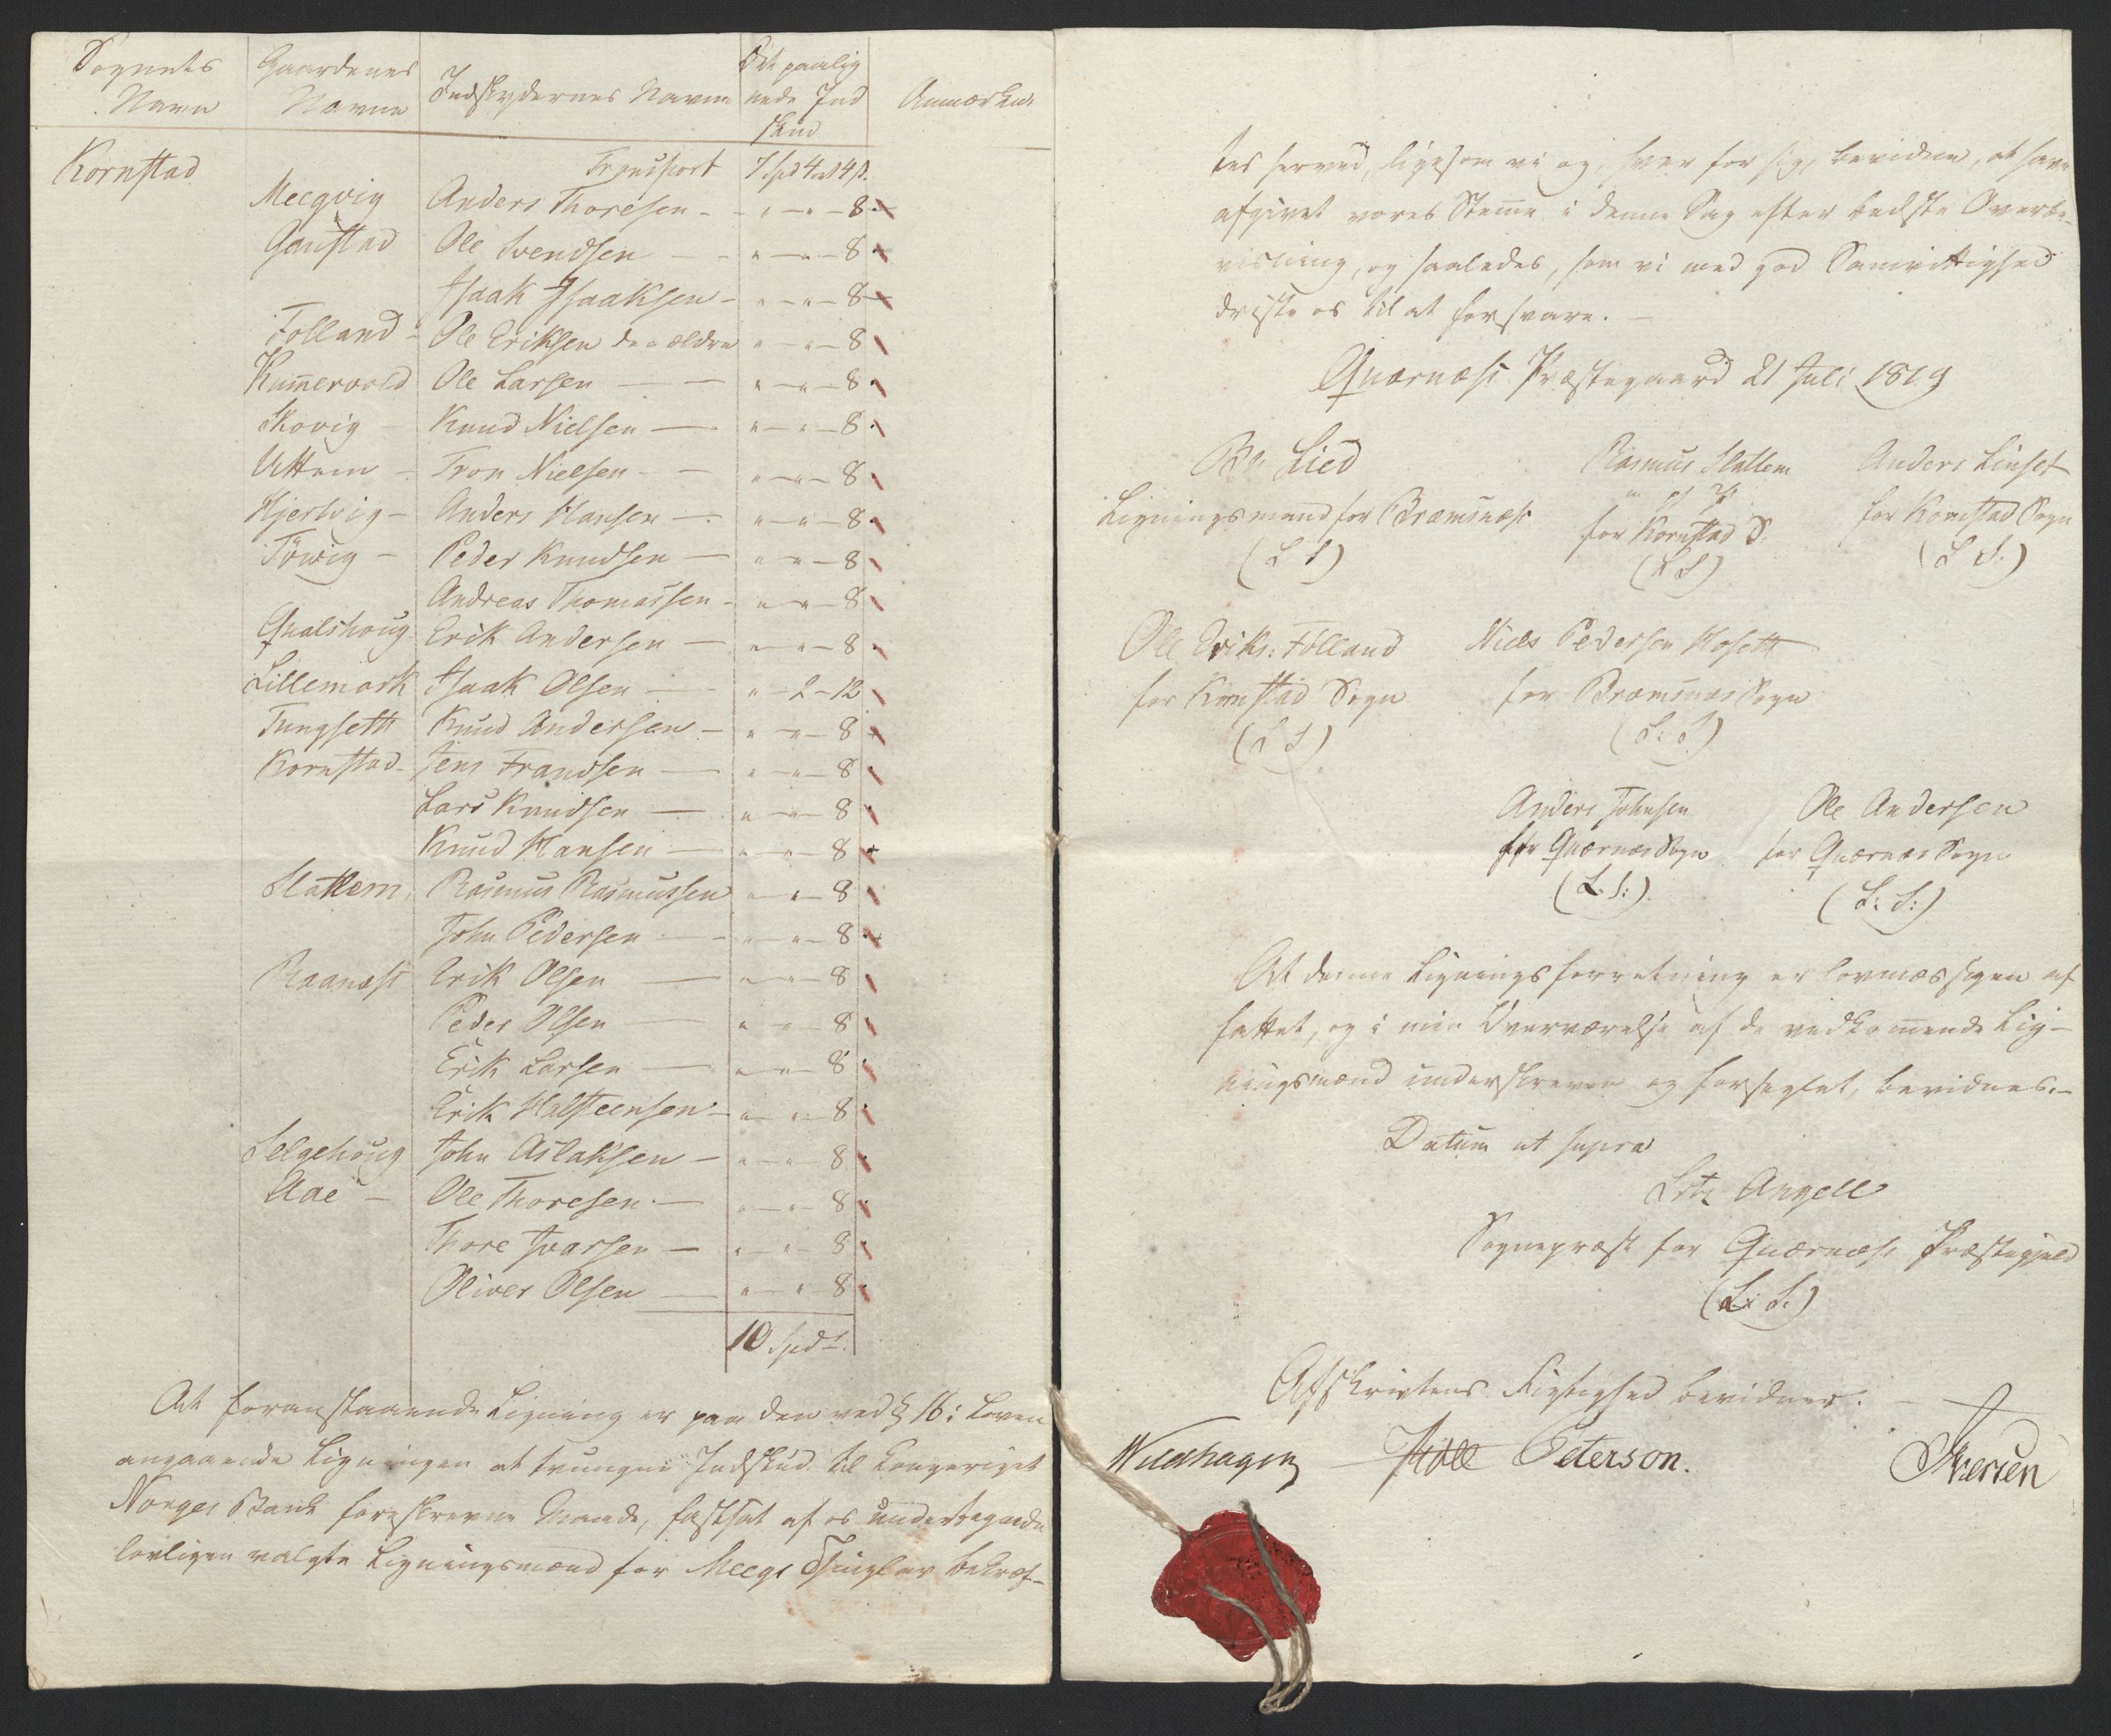 Sognets Navn | Gaardenes Navne | Indskydernes Navne | Det paalignede Indskud | Anmærkn.
Kornstad | Transport | 7 Spd 4 ort 4 ß.
Meegvig | Anders Thoresen - | " - " - 8
Gaustad | Ole Svendsen - | " - " - 8
Isaak Isaaksen - | " - " - 8
Folland - | Ole Eriksen den ældre | " - " - 8
Kum̅ervold | Ole Larsen - | " - " - 8
Skovig - | Knud Nielsen - | " - " - 8
Uttem - | Tron Nielsen - | " - " - 8
Hjertvig - | Anders Hansen - | " - " - 8
Tövig - | Peder Knudsen - | " - " - 8
Andreas Thomassen - | " - " - 8
Qualshoug | Erik Andersen - | " - " - 8
Lillemork | Isaak Olsen - | " - 2 - 12
Tungseth | Knud Andersen - | " - " - 8
Kornstad - | Jens Frandsen - | " - " - 8
Lars Knudsen - | " - " - 8
Knud Hansen - | " - " - 8
Slattem | Rasmus Rasmussen | " - " - 8
John Pedersen - | " - " - 8
Raanæss | Erik Olsen - | " - " - 8
Peder Olsen - | " - " - 8
Erik Larsen - | " - " - 8
Erik Halsteensen - | " - " - 8
Selgehoug | John Aslaksen - | " - " - 8
Aae - | Ole Thoresen - | " - " - 8
Thore Ivarsen - | " - " - 8
Oliver Olsen - | " - " - 8
10 Spdr.
At foranstaaende Ligning er paa den ved § 16 i Loven
angaaende Ligningen at tvungne Indskud til Kongeriget
Norges Bank foreskrevne Maade, fastsat af os undertegnede
lovligen valgte Ligningsmænd for Meegs Thinglav bekræf-
tes herved, ligesom vi og, hver for sig, bevidne, at have
afgivet vores Stem̅e i denne Sag efter bedste Overbe-
visning, og saaledes, som vi med god Samvittighed
driste os til at forsvare. -
Quærnæss Præstegaard 21 Juli 1819
Lied
Ligningsmand for Bræmsnæss
(L S)
Rasmus Slattem
for Kornstad S.
(L S)
Anders Linset
for Kornstad Sogn
(L S.)
Ole Eriks: Folland
for Kornstad Sogn
(L S)
Niels Pedersen Hoseth
for Bræmsnæs Sogn
(L: S.)
Anders Johnsen
for Quærnæs Sogn
(L. S:)
Ole Andersen
for Quærnæs Sogn
(L: S:)
At denne Ligningsforretning er lovmæssigen af
fattet, og i min Overværelse af de vedkom̅ende Lig-
ningsmænd underskreven og forseglet, bevidnes. -
Datum ut supra
Angell
Sognepræst for Quærnæss Præstegjeld
(L: S.)
Afskrivtens Rigtighed bevidner.
Wildhagen Peterson. Iversen